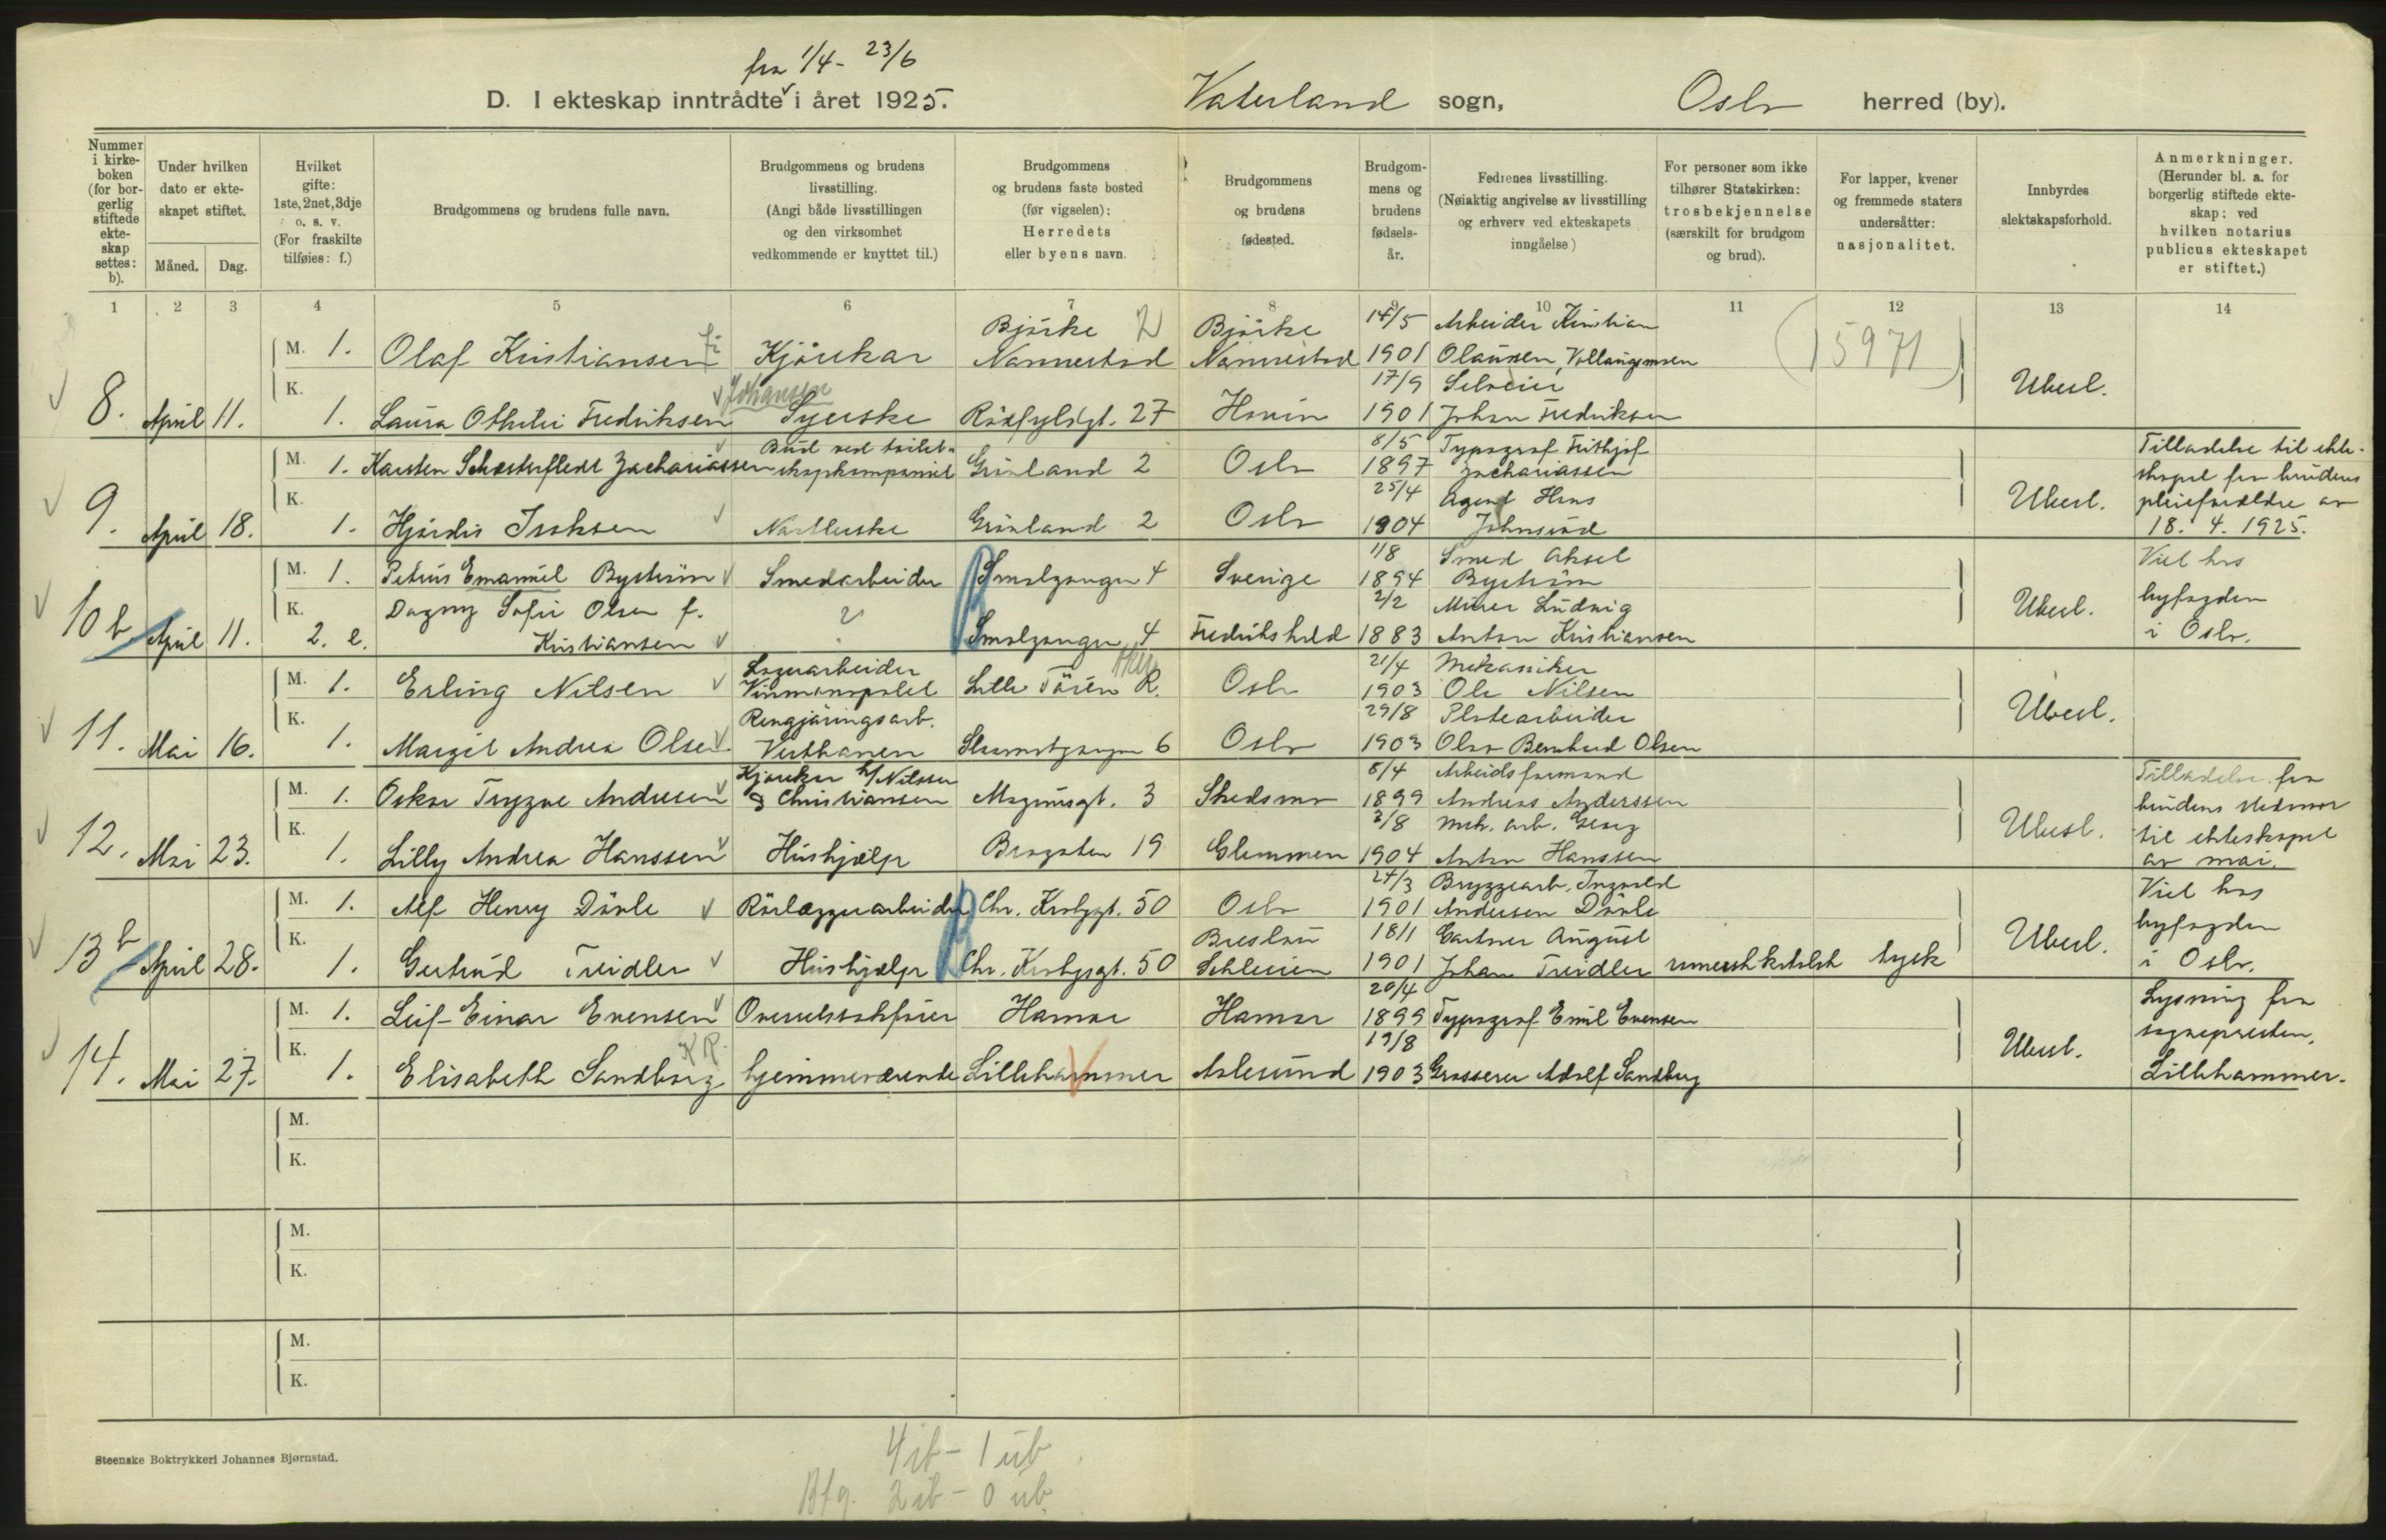 fra 1/4 - 23/6
D. I ekteskap inntrådte i året 1925. Vaterland sogn, Oslo herred (by).
Nummer i kirkeboken (for borgerlig stiftede ekteskap settes: b).
Under hvilken dato er ekteskapet stiftet.
Måned. Dag.
Hvilket gifte: 1ste, 2net, 3dje o. s. v. (For fraskilte tilføies: f.)
Brudgommens og brudens fulle navn.
Brudgommens og brudens livsstilling. (Angi både livsstillingen og den virksomhet vedkommende er knyttet til.)
Brudgommens og brudens faste bosted (før vigselen): Herredets eller byens navn.
Brudgommens og brudens fødested.
Brudgommens og brudens fødselsår.
Fedrenes livsstilling. (Nøiaktig angivelse av livsstilling og erhverv ved ekteskapets inngåelse)
For personer som ikke tilhører Statskirken: trosbekjennelse (særskilt for brudgom og brud).
For lapper, kvener og fremmede staters undersåtter: nasjonalitet.
Innbyrdes slektskapsforhold.
Anmerkninger. (Herunder bl. a. for borgerlig stiftede ekteskap: ved hvilken notarius publicus ekteskapet er stiftet.)
1 2 3 4 5 6 7 8 9 10 11 12 13 14
Bjørke Bjørke 14/5 Arbeider Kristian
M. 1. Olaf Kristiansen Kjørekar Nannestad Nannestad 1901 Olaussen, (15971)
K. Johansen 17/9
8. April 11. 1. Laura Othelie Fredriksen Syerske Rødfyldgt. 27 Hovin 1901 Johan Fredriksen Ubesl.
Bud ved toilet- 8/5 Typograf Frithjof Tilladelse til ekte-
M. 1. Karsten Zachariassen skapkompaniet Grønland 2 Oslo 1897 Zachariassen skapet fra brudens
K. 25/4 Agent Hans Ubesl. pleieforældre av
9. April 18. 1. Hjørdis Isaksen Grønland 2 Oslo 1904 Johnsrød 18. 4. 1925.
1/8 Smed Aksel Viet hos
M. 1. Petrus Emanuel Byström Smedarbeider Smalgangen 4 Sverige 1894 Byström byfogden
K. Dagny Sofie Olsen f. ? 2/2 Murer Ludvig Ubesl.
10 b April 11. 2. e. Kristiansen Smalgangen 4 Fredrikshald 1883 Anton Kristiansen i Oslo.
Lagerarbeider Aker 21/4 Mekaniker
M. 1. Erling Nilsen Vinmonopolet Lille Tøien R. Oslo 1903 Ole Nilsen
K. Rengjøringsarb. 29/8 Platearbeider Ubesl.
11. Mai 16. 1. Margit Andrea Olsen Vestbanen 6 Oslo 1903 Olav Bernhard Olsen
Kjørekar h/ Nilssen 8/4 Arbeidsformand Tilladelse fra
M. 1. Oskar Trygve Andresen & Christiansen Magnusgt. 3 Skedsmo 1899 Andreas Anderssen brudens stedmor
K. 2/8 mek. arb. Georg Ubesl. til ekteskapet
12. Mai 23. 1. Lilly Andrea Hanssen Hushjælp Brogaten 19 Glemmen 1904 Anton Hanssen av mai.
24/3 Bryggearb. Ingvald Viet hos
M. 1. Alf Henry Dövle Rörlæggerarbeider Chr. Krohgsgt. 50 Oslo 1901 Andersen Dövle byfogden
K. Breslau 18/1 Gartner August Ubesl.
13 b April 28. 1. Gertrud Treidler Hushjælp Chr. Krohgsgt. 50 Schlesien 1901 Johan Treidler romersk katolsk tysk i Oslo.
20/4 Lysning fra
M. 1. Leif-Einar Evensen Overretssakfører Hamar Hamar 1899 Typograf Emil Evensen sognepresten,
K. KR. 19/8 Ubesl.
14. Mai 27. 1. Elisabeth Sandborg hjemmeværende Lillehammer Aalesund 1903 Grosserer Adolf Sandborg Lillehammer.
M.
K.
M.
K.
M.
K.
4 ib - 1 ub
Bfg. 2 ib - 0 ub
Steenske Boktrykkeri Johannes Bjørnstad.